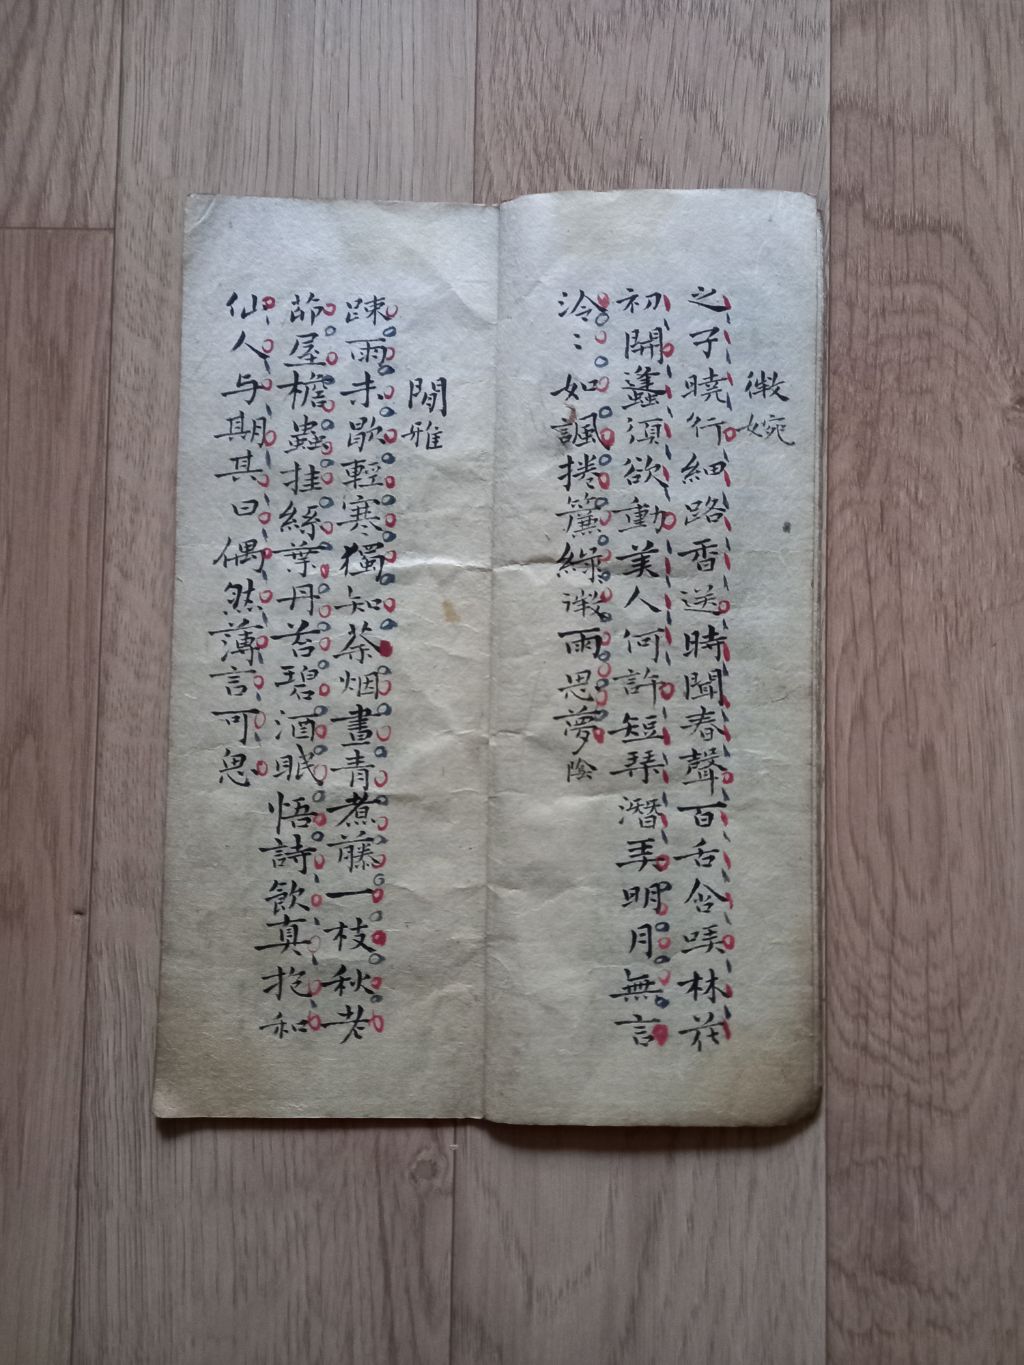 微婉
之子曉行細路香送時聞春聲百舌含咲林花
初開蠭須欲動美人何許短琴潛弄明月無言
泠〻如諷捲簾綠漵雨思夢陰
閒雅
疎雨未歇輕寒獨知茶烟晝青煮藤一枝秋老
茆屋檐蟲挂絲葉丹苔碧酒眠悟詩飲真抱和
仙人与期其曰偶然薄言可思